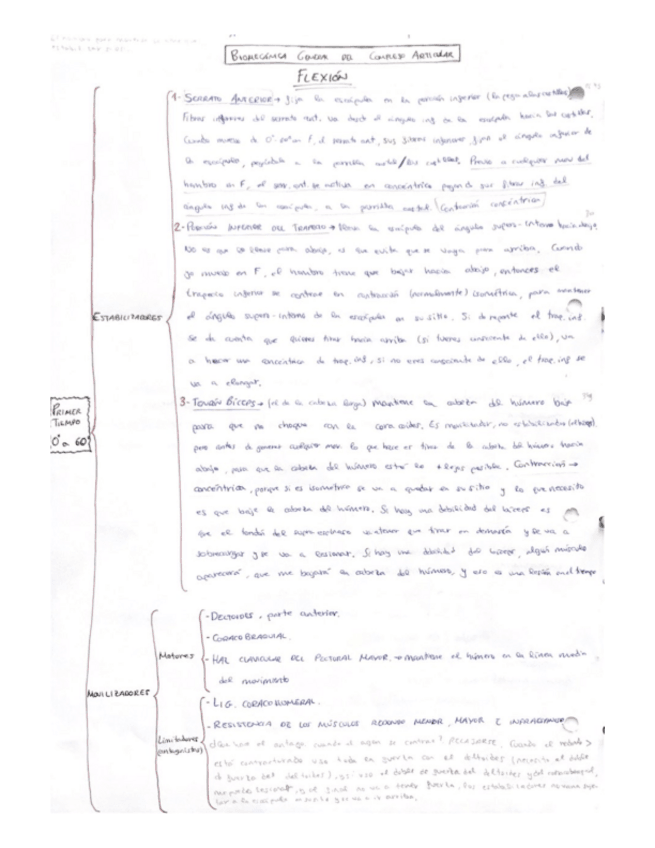 BIOMECÁNICA GENERAL DEL COMPLEJO ARTICULAR
FLEXIÓN
1- SERRATO ANTERIOR → fija la escápula en la porción inferior (la pega a las costillas)
Fibras inferiores del serrato ant. va desde el ángulo inf de la escápula hacia las costillas.
Cuando muevo de 0°- en F, el serrato ant, sus fibras inferiores, fijan el ángulo inferior de
la escápula, pegándola a la parrilla costal/las costillas. Previo a cualquier mov del
hombro en F, el serr. ant se activa en concéntrica pegando sus fibras inf. del
ángulo inf de la escápula, a la parrilla costal. (Contracción concéntrica)
2- PORCIÓN INFERIOR DEL TRAPECIO → lleva la escápula del ángulo supero-interno hacia abajo
No es que lo lleve para abajo, si no evita que se vaya para arriba. Cuando
yo muevo en F, el hombro tiene que bajar hacia abajo, entonces el
trapecio inferior se contrae en contracción (normalmente) isométrica, para mantener
el ángulo supero-interno de la escápula en su sitio. Si de repente el trap. inf.
se da cuenta que quieres tirar hacia arriba (si tienes consciente de ello), va
a hacer una concéntrica de trap. inf, si no eres consciente de ello, el trap. inf se
va a elongar.
ESTABILIZADORES
3- TENDÓN BÍCEPS → (el de la cabeza larga) mantiene la cabeza del húmero baja
para que no choque con la cora. Es movilizador, no estabilizador
pero antes de generar cualquier mov. lo que hace es tirar de la cabeza del húmero hacia
abajo, para que la cabeza del húmero esté lo + lejos posible. Contracción →
concéntrica, porque si es isométrica se va a quedar en su sitio y lo que necesito
es que baje la cabeza del húmero. Si hay una debilidad del bíceps es
que el tendón del supraespinoso va a tener que tirar en demasía y se va a
sobrecargar y se va a lesionar. Si hay una debilidad del bíceps, algún músculo
aparecerá, que me bajará la cabeza del húmero, y eso es una lesión en el tiempo
PRIMER
TIEMPO
0° a 60°
MOVILIZADORES
Motores
- DELTOIDES, parte anterior.
- CORACOBRAQUIAL.
- HAZ CLAVICULAR DEL PECTORAL MAYOR. → mantiene el húmero en la línea media
del movimiento
Limitadores
(antagonistas)
- LIG. CORACOHUMERAL.
- RESISTENCIA DE LOS MÚSCULOS REDONDO MENOR, MAYOR E INFRAESPINOSO
¿Qué hace el antag. cuando el agon se contrae? RELAJARSE. Cuando el redondo >
está contracturado